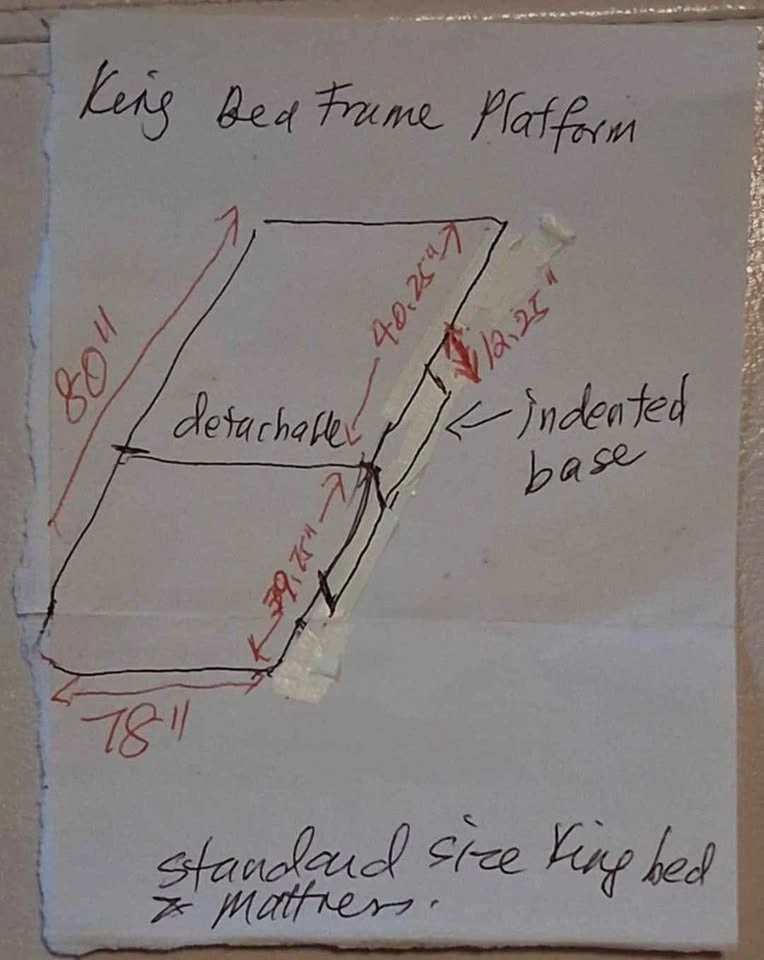 King Bed Frame Platform
40.25"
12.25"
80"
detachable
indented
base
39.25"
78"
standard size King bed
mattress.